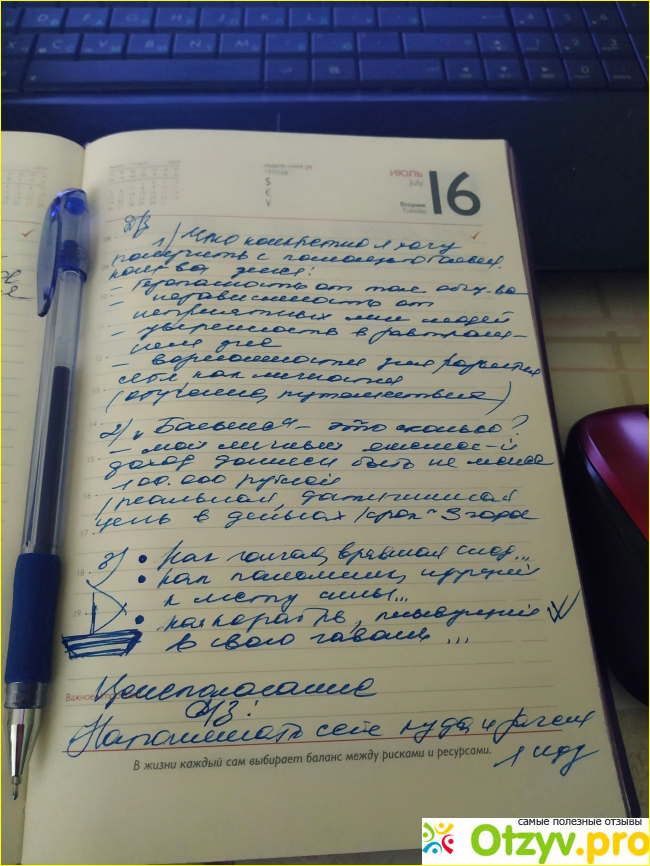 ИЮЛЬ
July
16
Вторник
Tuesday
$
€
¥
Д/З
1) Что конкретно я хочу
получить с помощью больших
кол-ва денег:
- независимость от
неприятных мне людей
- уверенность в завтраш-
нем дне
- возможности для развития
себя как личности
(обучение, путешествия)
2) "Большая - это сколько?
- мой личный ежемес-й
доход должен быть не менее
100.000 рублей
(реальная, достижимая
цель в деньгах / срок ~ 3 года
3) • как
• как паломник, идущий
к месту силы...
• как корабль, плывущий
в свою гавань ...
Целеполагание
Важное
Д/З:
Напоминать себе куда и зачем
я иду
В жизни каждый сам выбирает баланс между рисками и ресурсами.
самые полезные отзывы
Otzyv.pro